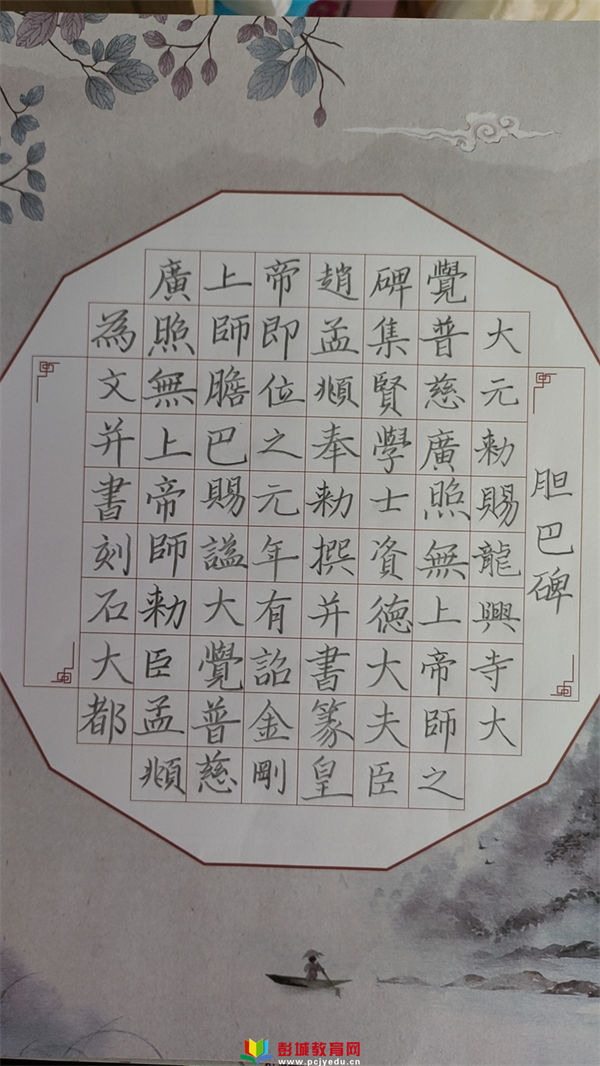 胆巴碑
大元勅賜龍興寺大
覺普慈廣照無上帝師之
碑集賢學士資德大夫臣
趙孟頫奉勅撰并書篆皇
帝即位之元年有詔金剛
上師膽巴賜諡大覺普慈
廣照無上帝師勅臣孟頫
為文并書刻石大都
彭城教育网
www.pcjyedu.cn